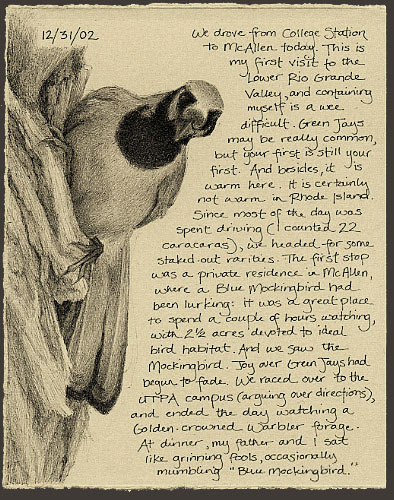 12/31/02
We drove from College Station
to McAllen today. This is
my first visit to the
Lower Rio Grande
Valley, and containing
myself is a wee
difficult. Green Jays
may be really common,
but your first is still your
first. And besides, it is
warm here. It is certainly
not warm in Rhode Island.
Since most of the day was
spent driving (I counted 22
caracaras), we headed for some
staked-out rarities. The first stop
was a private residence in McAllen,
where a Blue Mockingbird had
been lurking: it was a great place
to spend a couple of hours watching,
with 2½ acres devoted to ideal
bird habitat. And we saw the
Mockingbird. Joy over Green Jays had
begun to fade. We raced over to the
UTPA campus (arguing over directions),
and ended the day watching a
Golden-crowned Warbler forage.
At dinner, my father and I sat
like grinning fools, occasionally
mumbling "Blue Mockingbird."